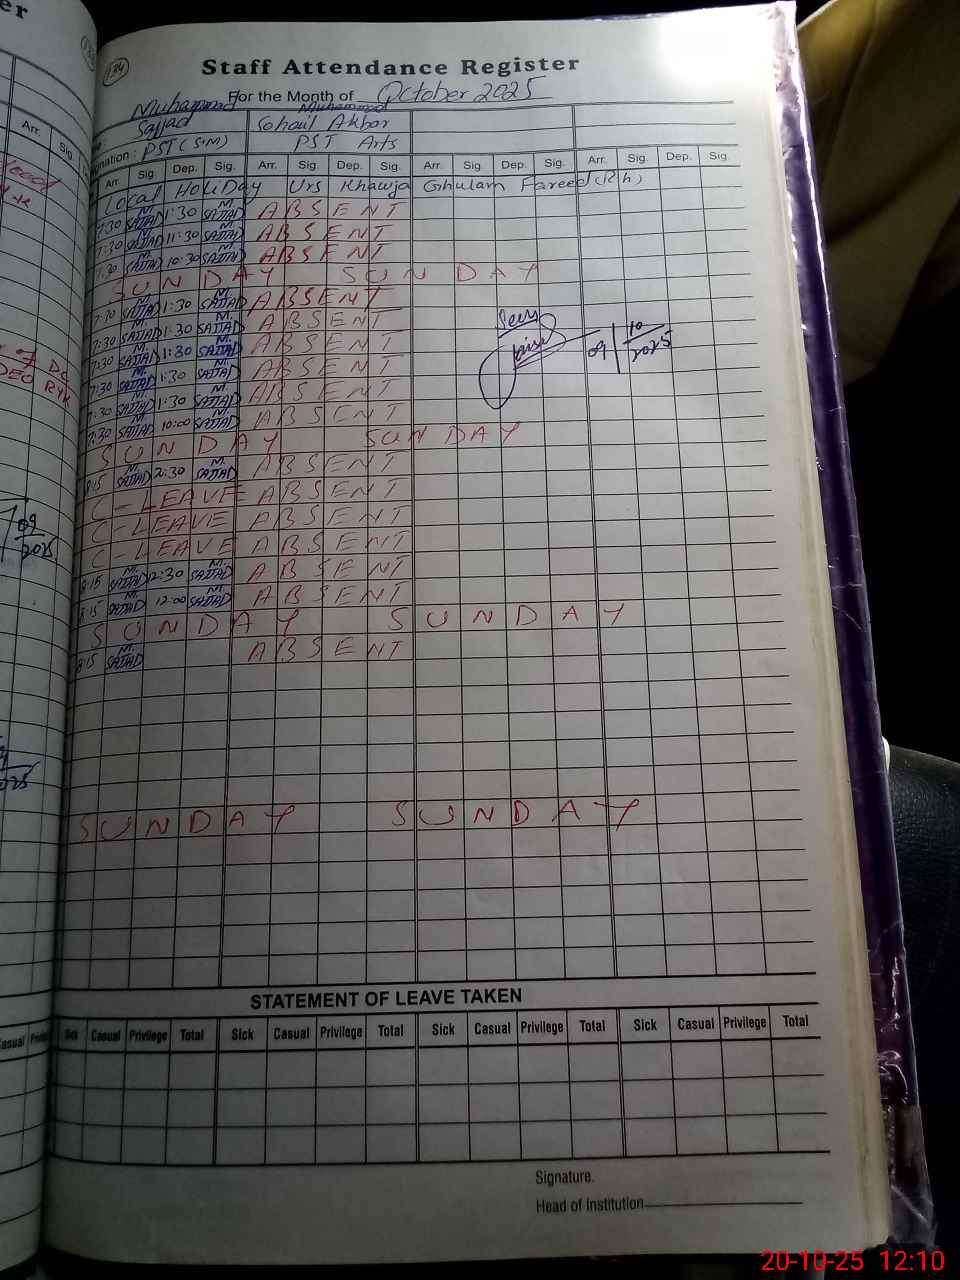 134
Staff Attendance Register
For the Month of October 2025
Muhammad Sajjad Muhammad Sohail Akbar
nation : PST (S.M) PST Arts
Arr. Sig. Dep. Sig. Arr. Sig. Dep. Sig. Arr. Sig. Dep. Sig. Arr. Sig. Dep. Sig.
Local Holiday Urs Khawja Ghulam Fareed (R.h)
7:30 M. SAJJAD 1:30 M. SAJJAD ABSENT
7:30 M. SAJJAD 11:30 M. SAJJAD ABSENT
7:30 M. SAJJAD 10:30 M. SAJJAD ABSENT
SUNDAY SUNDAY
7:30 M. SAJJAD 1:30 M. SAJJAD ABSENT
7:30 M. SAJJAD 1:30 M. SAJJAD ABSENT
7:30 M. SAJJAD 1:30 M. SAJJAD ABSENT
7:30 M. SAJJAD 1:30 M. SAJJAD ABSENT
7:30 M. SAJJAD 1:30 M. SAJJAD ABSENT
7:30 M. SAJJAD 10:00 M. SAJJAD ABSENT
Seen
09/10/2025
SUNDAY SUNDAY
8:15 M. SAJJAD 2:30 M. SAJJAD ABSENT
C-LEAVE ABSENT
C-LEAVE ABSENT
C-LEAVE ABSENT
8:15 M. SAJJAD 2:30 M. SAJJAD ABSENT
8:15 M. SAJJAD 12:00 M. SAJJAD ABSENT
SUNDAY SUNDAY
8:15 M. SAJJAD ABSENT
SUNDAY SUNDAY
STATEMENT OF LEAVE TAKEN
Sick Casual Privilege Total Sick Casual Privilege Total Sick Casual Privilege Total Sick Casual Privilege Total
Signature.
Head of Institution
Arr. Sig.
of DC
DEO RYK
09
2025
2025
Casual
20-10-25 12:10